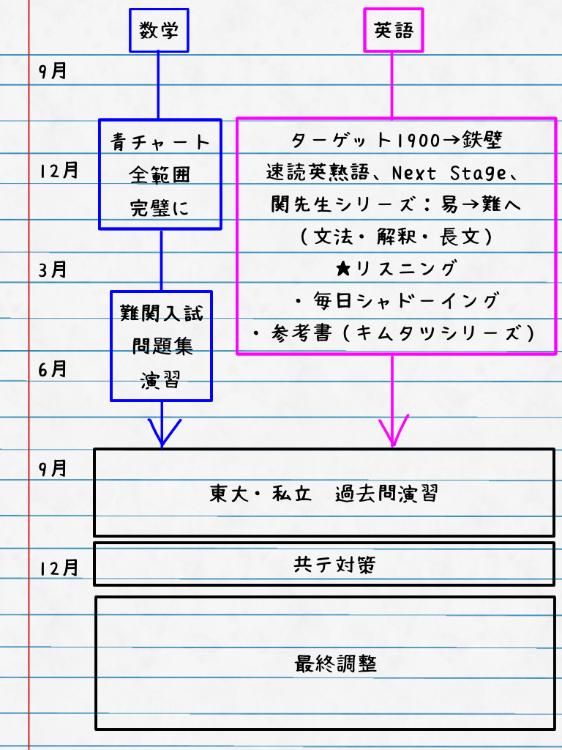 数学
英語
9月
12月
3月
6月
9月
12月
青チャート
全範囲
完璧に
難関入試
問題集
演習
ターゲット1900→鉄壁
速読英熟語、Next Stage、
関先生シリーズ：易→難へ
（文法・解釈・長文）
★リスニング
・毎日シャドーイング
・参考書（キムタツシリーズ）
東大・私立　過去問演習
共テ対策
最終調整